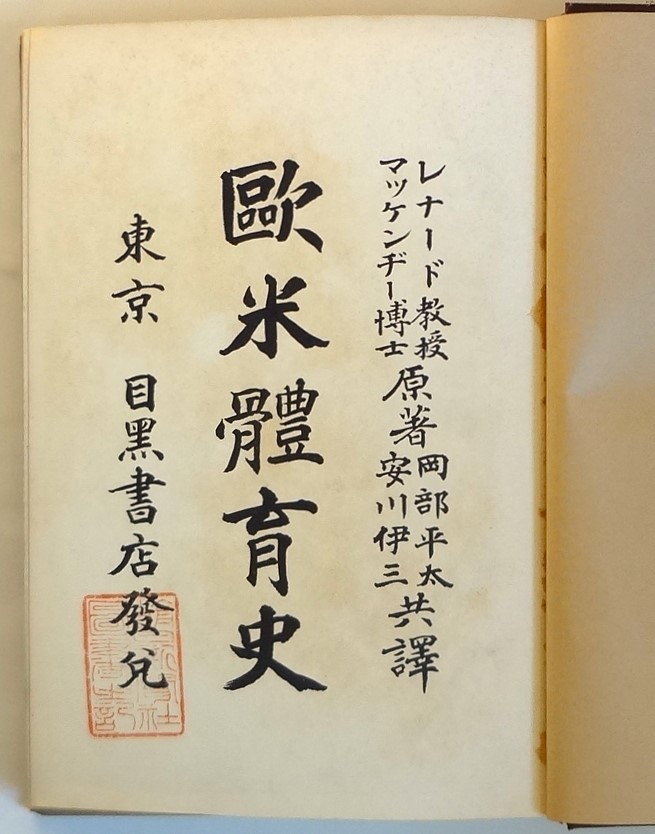 レナード教授
マッケンヂー博士
原著
岡部平太
安川伊三
共譯
歐米體育史
東京 目黑書店發兌